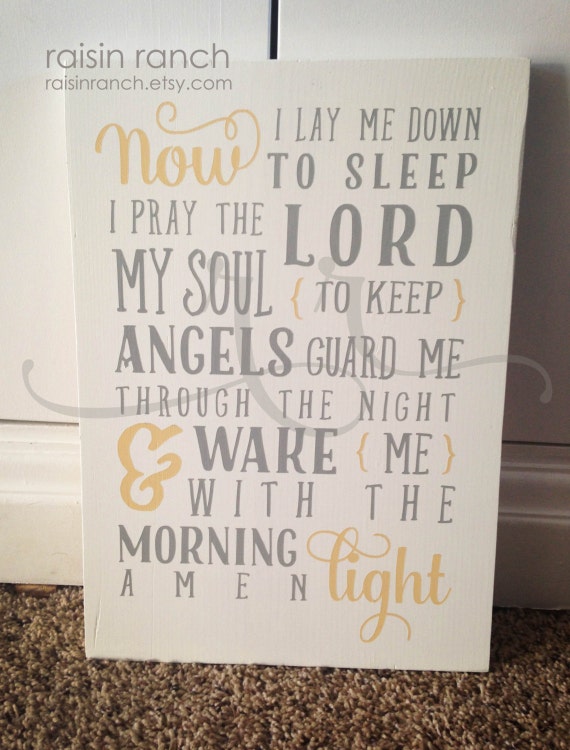 raisin ranch
raisinranch.etsy.com
Now I LAY ME DOWN
TO SLEEP
I PRAY THE LORD
MY SOUL { TO KEEP }
ANGELS GUARD ME
THROUGH THE NIGHT
& WAKE { ME }
WITH THE
MORNING light
AMEN